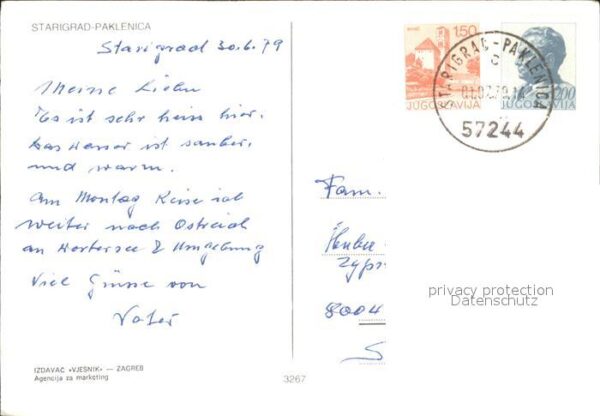 STARIGRAD-PAKLENICA
Starigrad 30.6.79
Meine Lieben
Es ist sehr heiss hier.
Das Wasser ist sauber
und warm.
Am Montag Reise ich
weiter nach Ostreich
an Wortersee & Umgebung
Viel Grüsse von
Vater
IZDAVAČ «VJESNIK» — ZAGREB
Agencija za marketing
3267
1,50
JUGOSLAVIJA
2,00
JUGOSLAVIJA
STARIGRAD-PAKLENICA
57244
Fam.
8004
privacy protection
Datenschutz